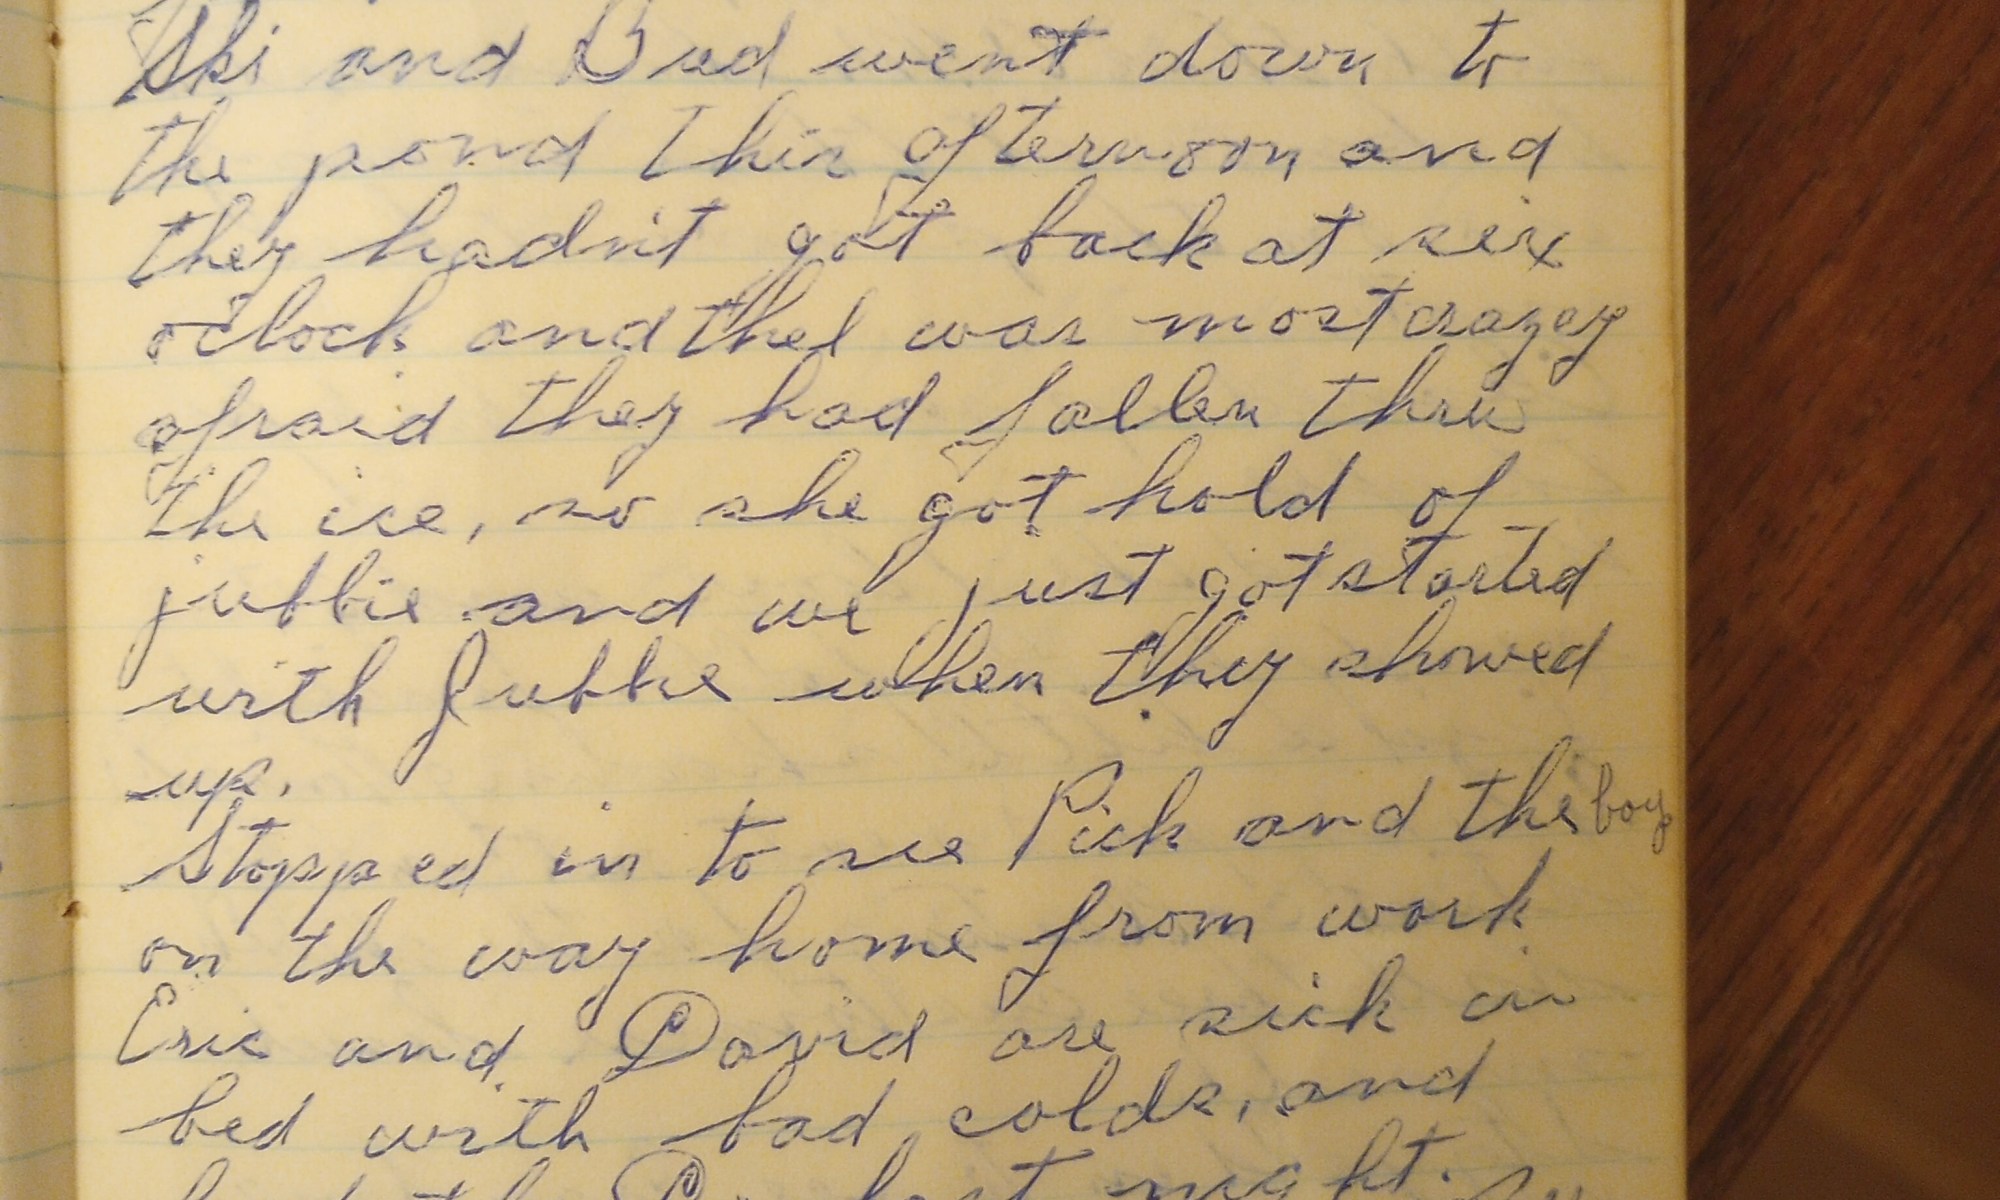 Ski and Bud went down to
the pond this afternoon and
they hadn't got back at six
o'clock and thel was most crazey
afraid they had fallen thru
the ice, so she got hold of
jubbie and we just got started
with Jubbie when they showed
up.
Stopped in to see Pick and the boys
on the way home from work
Eric and David are sick in
bed with bad colds, and
last night.